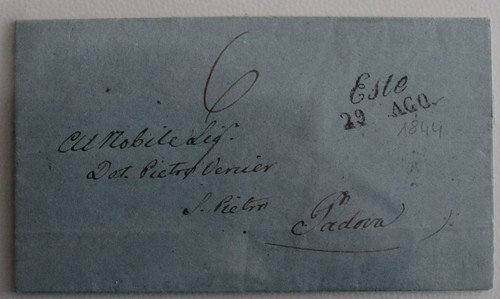 6
Este
29 AGO.
1844
All Nobile Sig.r
Dot. Pietro Venier
S. Pietro
Padova